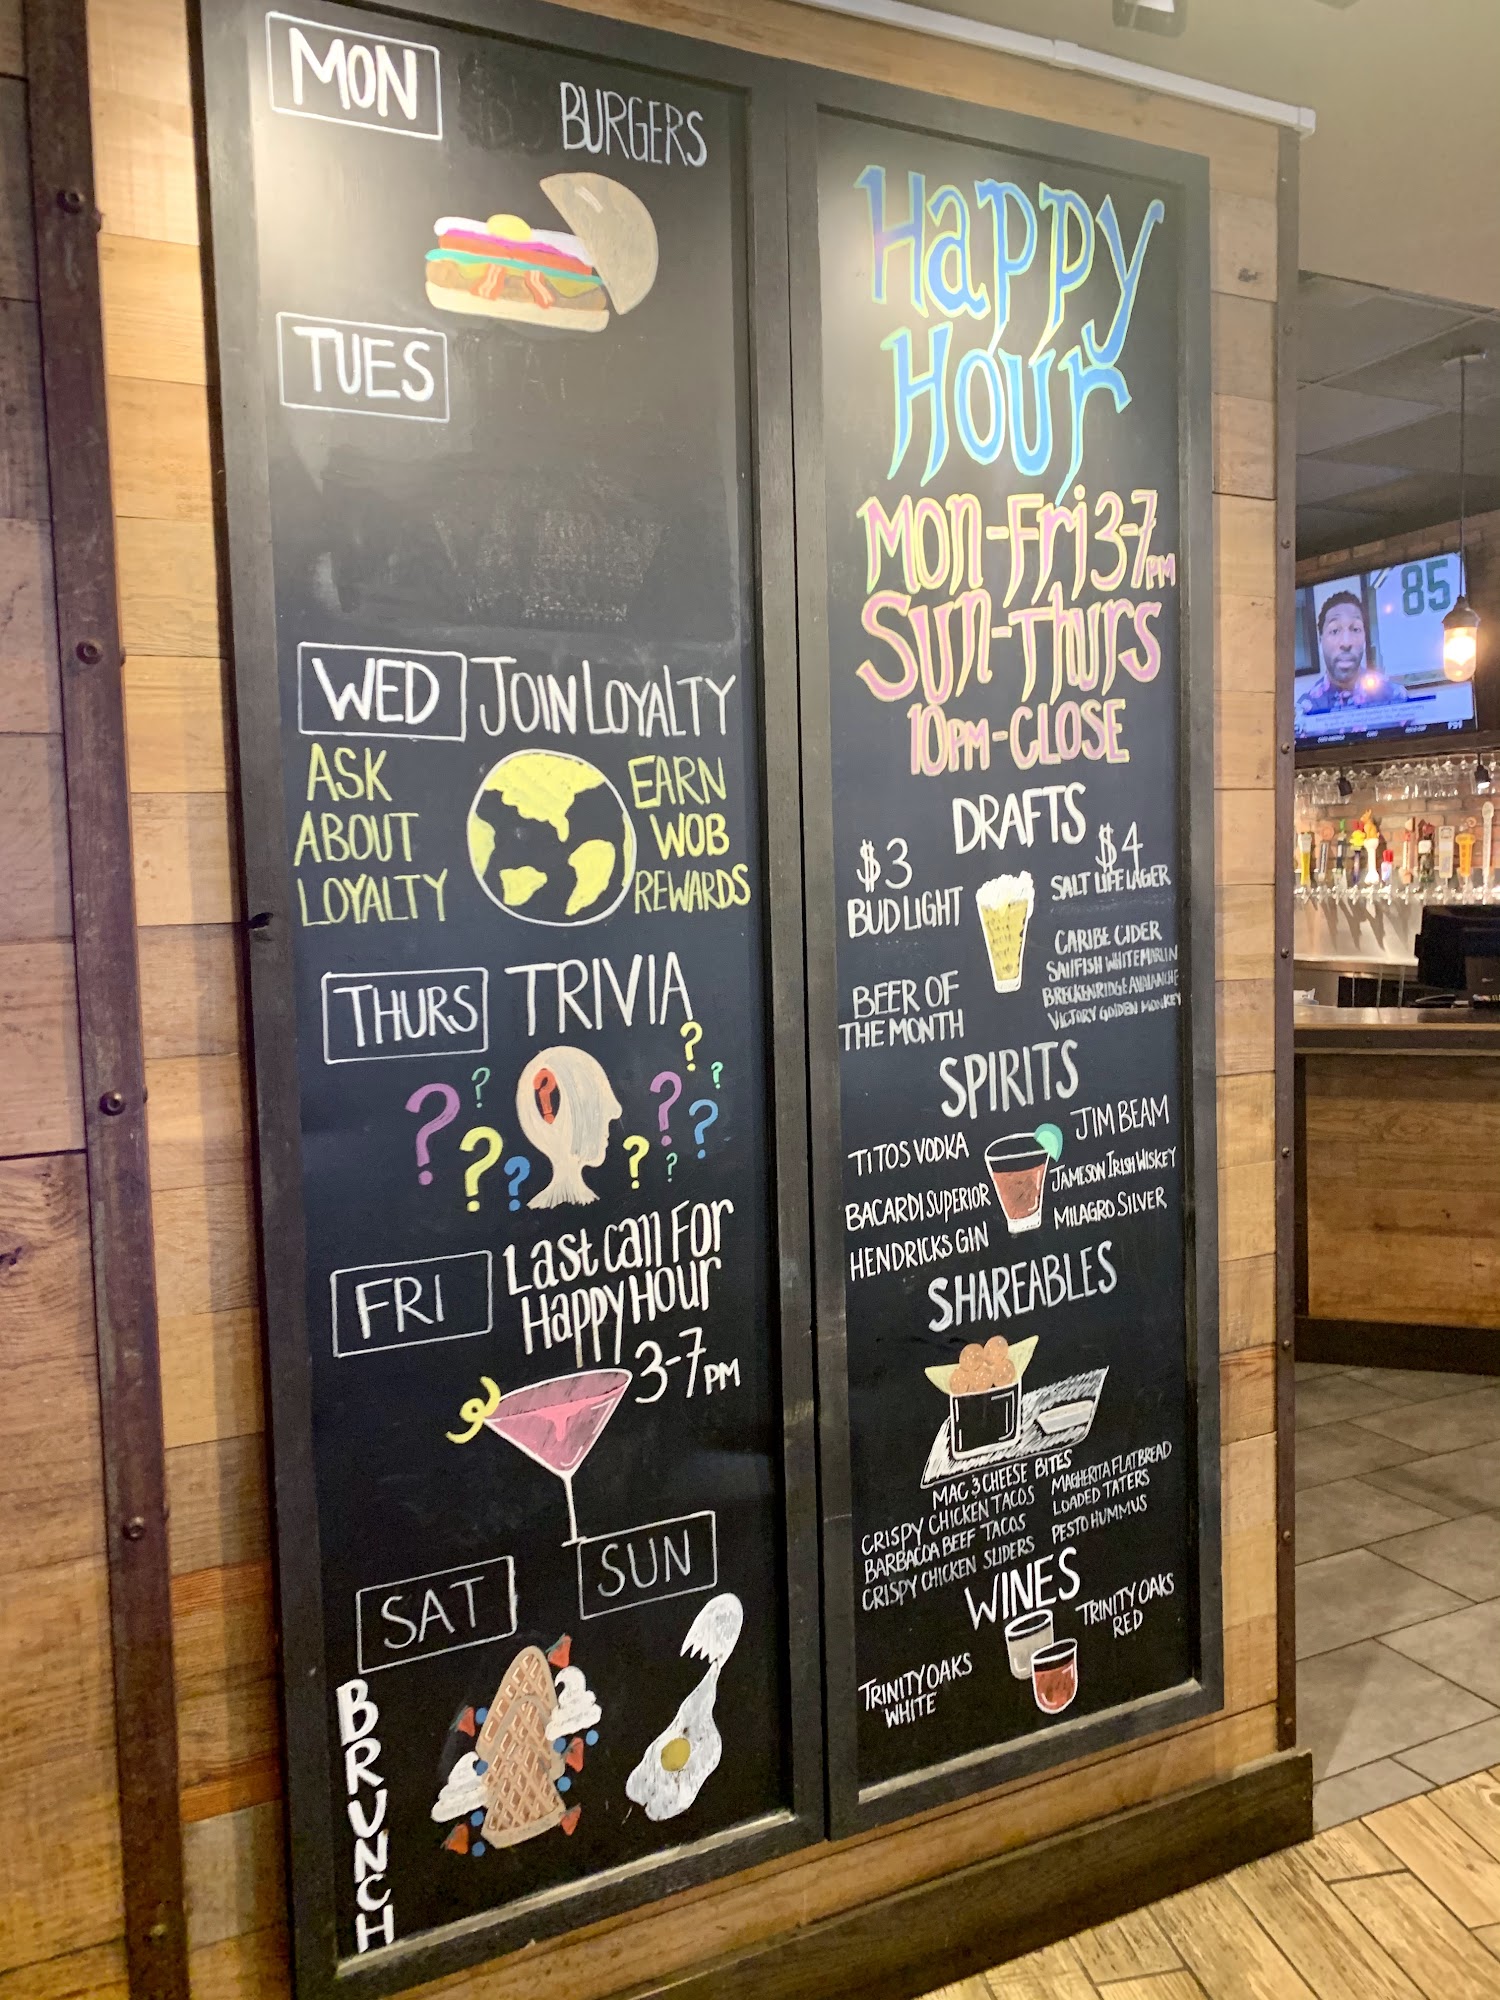 MON
BURGERS
TUES
WED
JOIN LOYALTY
ASK
ABOUT
LOYALTY
EARN
WOB
REWARDS
THURS
TRIVIA
? ? ? ? ? ? ? ? ? ? ?
FRI
Last Call For
Happy Hour
3-7PM
SAT
SUN
BRUNCH
Happy
Hour
Mon-Fri 3-7PM
Sun-Thurs
10PM-CLOSE
DRAFTS
$3
BUD LIGHT
BEER OF
THE MONTH
$4
SALT LIFE LAGER
CARIBE CIDER
SAILFISH WHITE MARLIN
BRECKENRIDGE AVALANCHE
VICTORY GOLDEN MONKEY
SPIRITS
TITOS VODKA
BACARDI SUPERIOR
HENDRICKS GIN
JIM BEAM
JAMESON IRISH WISKEY
MILAGRO SILVER
SHAREABLES
MAC & CHEESE BITES
CRISPY CHICKEN TACOS
BARBACOA BEEF TACOS
CRISPY CHICKEN SLIDERS
MAGHERITA FLATBREAD
LOADED TATERS
PESTO HUMMUS
WINES
TRINITY OAKS
WHITE
TRINITY OAKS
RED
85